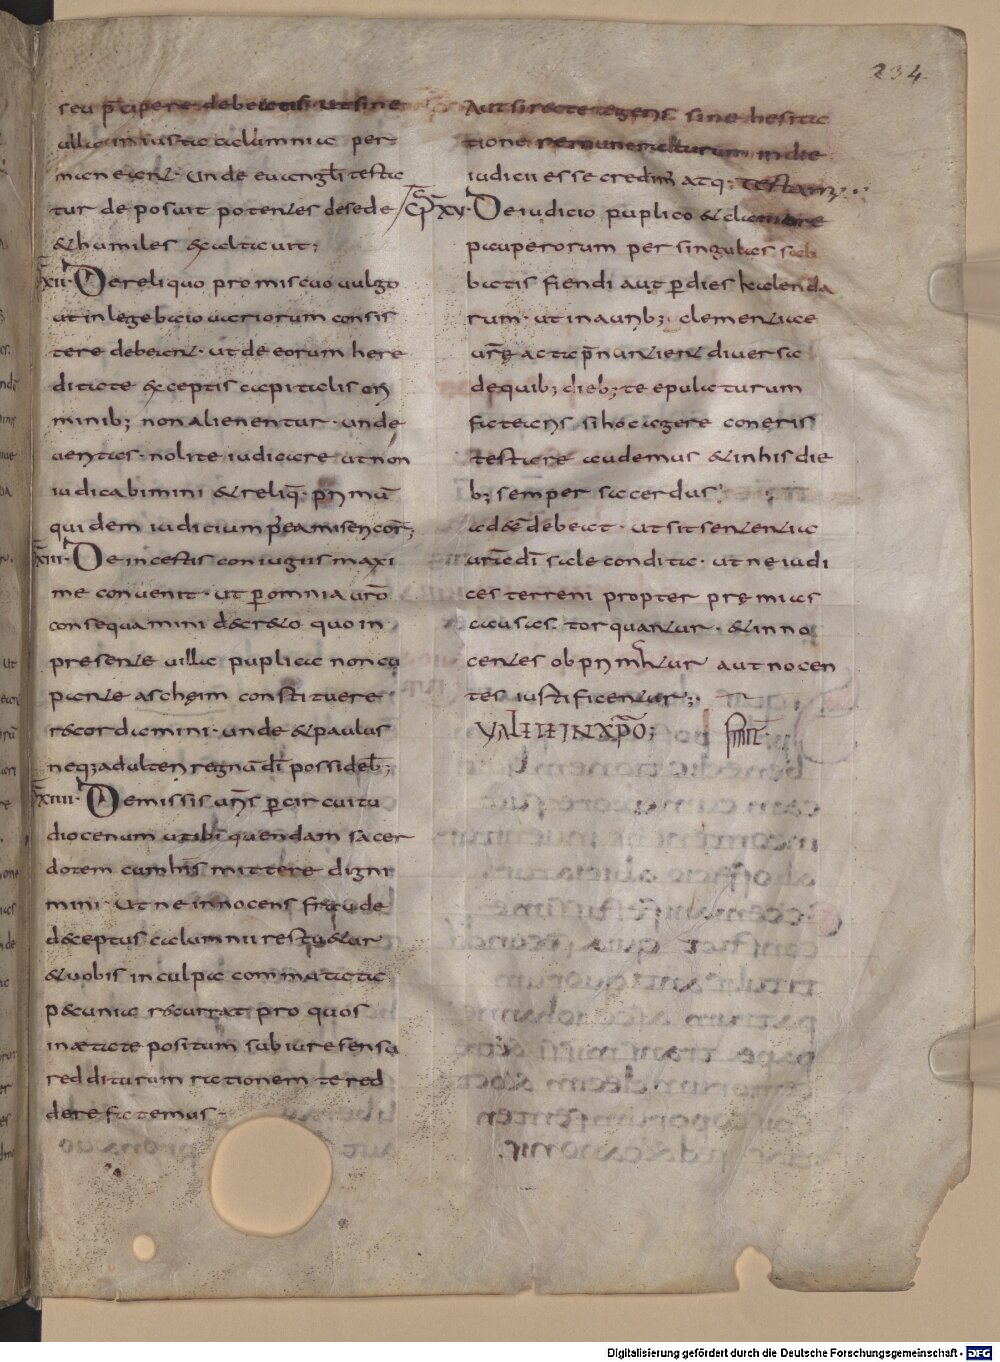 234
seu p̄cipere debetis ut sine
ulla iniusta calumnia per-
maneant· Unde euangl̄i testa
tur deposuit potentes desede
&humiles &xaltauit;
xii· Dereliquo promiscuo uulgo
ut inlege baioariorum consis
tere debeant· ut de eorum here
ditate &xceptis capitalis cri
minib; non alienentur· unde
ueritas· nolite iudicare ut non
iudicabimini & reliq̄·
quidem iudicium
xiii· De incestis coniugiis maxi
me conuenit· ut p̱omnia ur̄o
consequamini d&cr&o quo in
presente uilla puplica noncu
pante ascheim constituere
r&cordamini· unde & paulus
neq; adulteri regnū dī possideb̄;
xiiii· Demissis ur̄is p̱circuitu
diocenum ut ibi quendam sacer
dotem cum his mittere digni
mini· ut ne innocens fraude
d&ceptus calumnii restu&ur
& uobis inculpa commatata
p&cunia r&currat pro quos
inætate positum sub iure fensa
redditurum rationem te red
dere fatemus·
Aut si recte egeris sine hesita
tione remuneraturum indie
iudicii esse credim̄ atq; testam̄;
cp̄ xv· De iudicio puplico & clamore
pauperorum per singulas sab
batis fiendi aut p̱dies kalenda
rum· ut in aurib; clementiae
ur̄ę acta p̄ nuntient diuersa
dequib; dieb; te epulaturum
fateris si hoc agere coneris
testare audemus & in his die
b; semper sacerdus
ad&&debeat· ut sit sententia
ur̄a edī sale condita· ut ne iudi
ces terreni propter premius
causas torquantur· & inno
centes ob aut nocen
tes iustificentur;
VALETE IN XP̄O; FINIT·
Digitalisierung gefördert durch die Deutsche Forschungsgemeinschaft - DFG